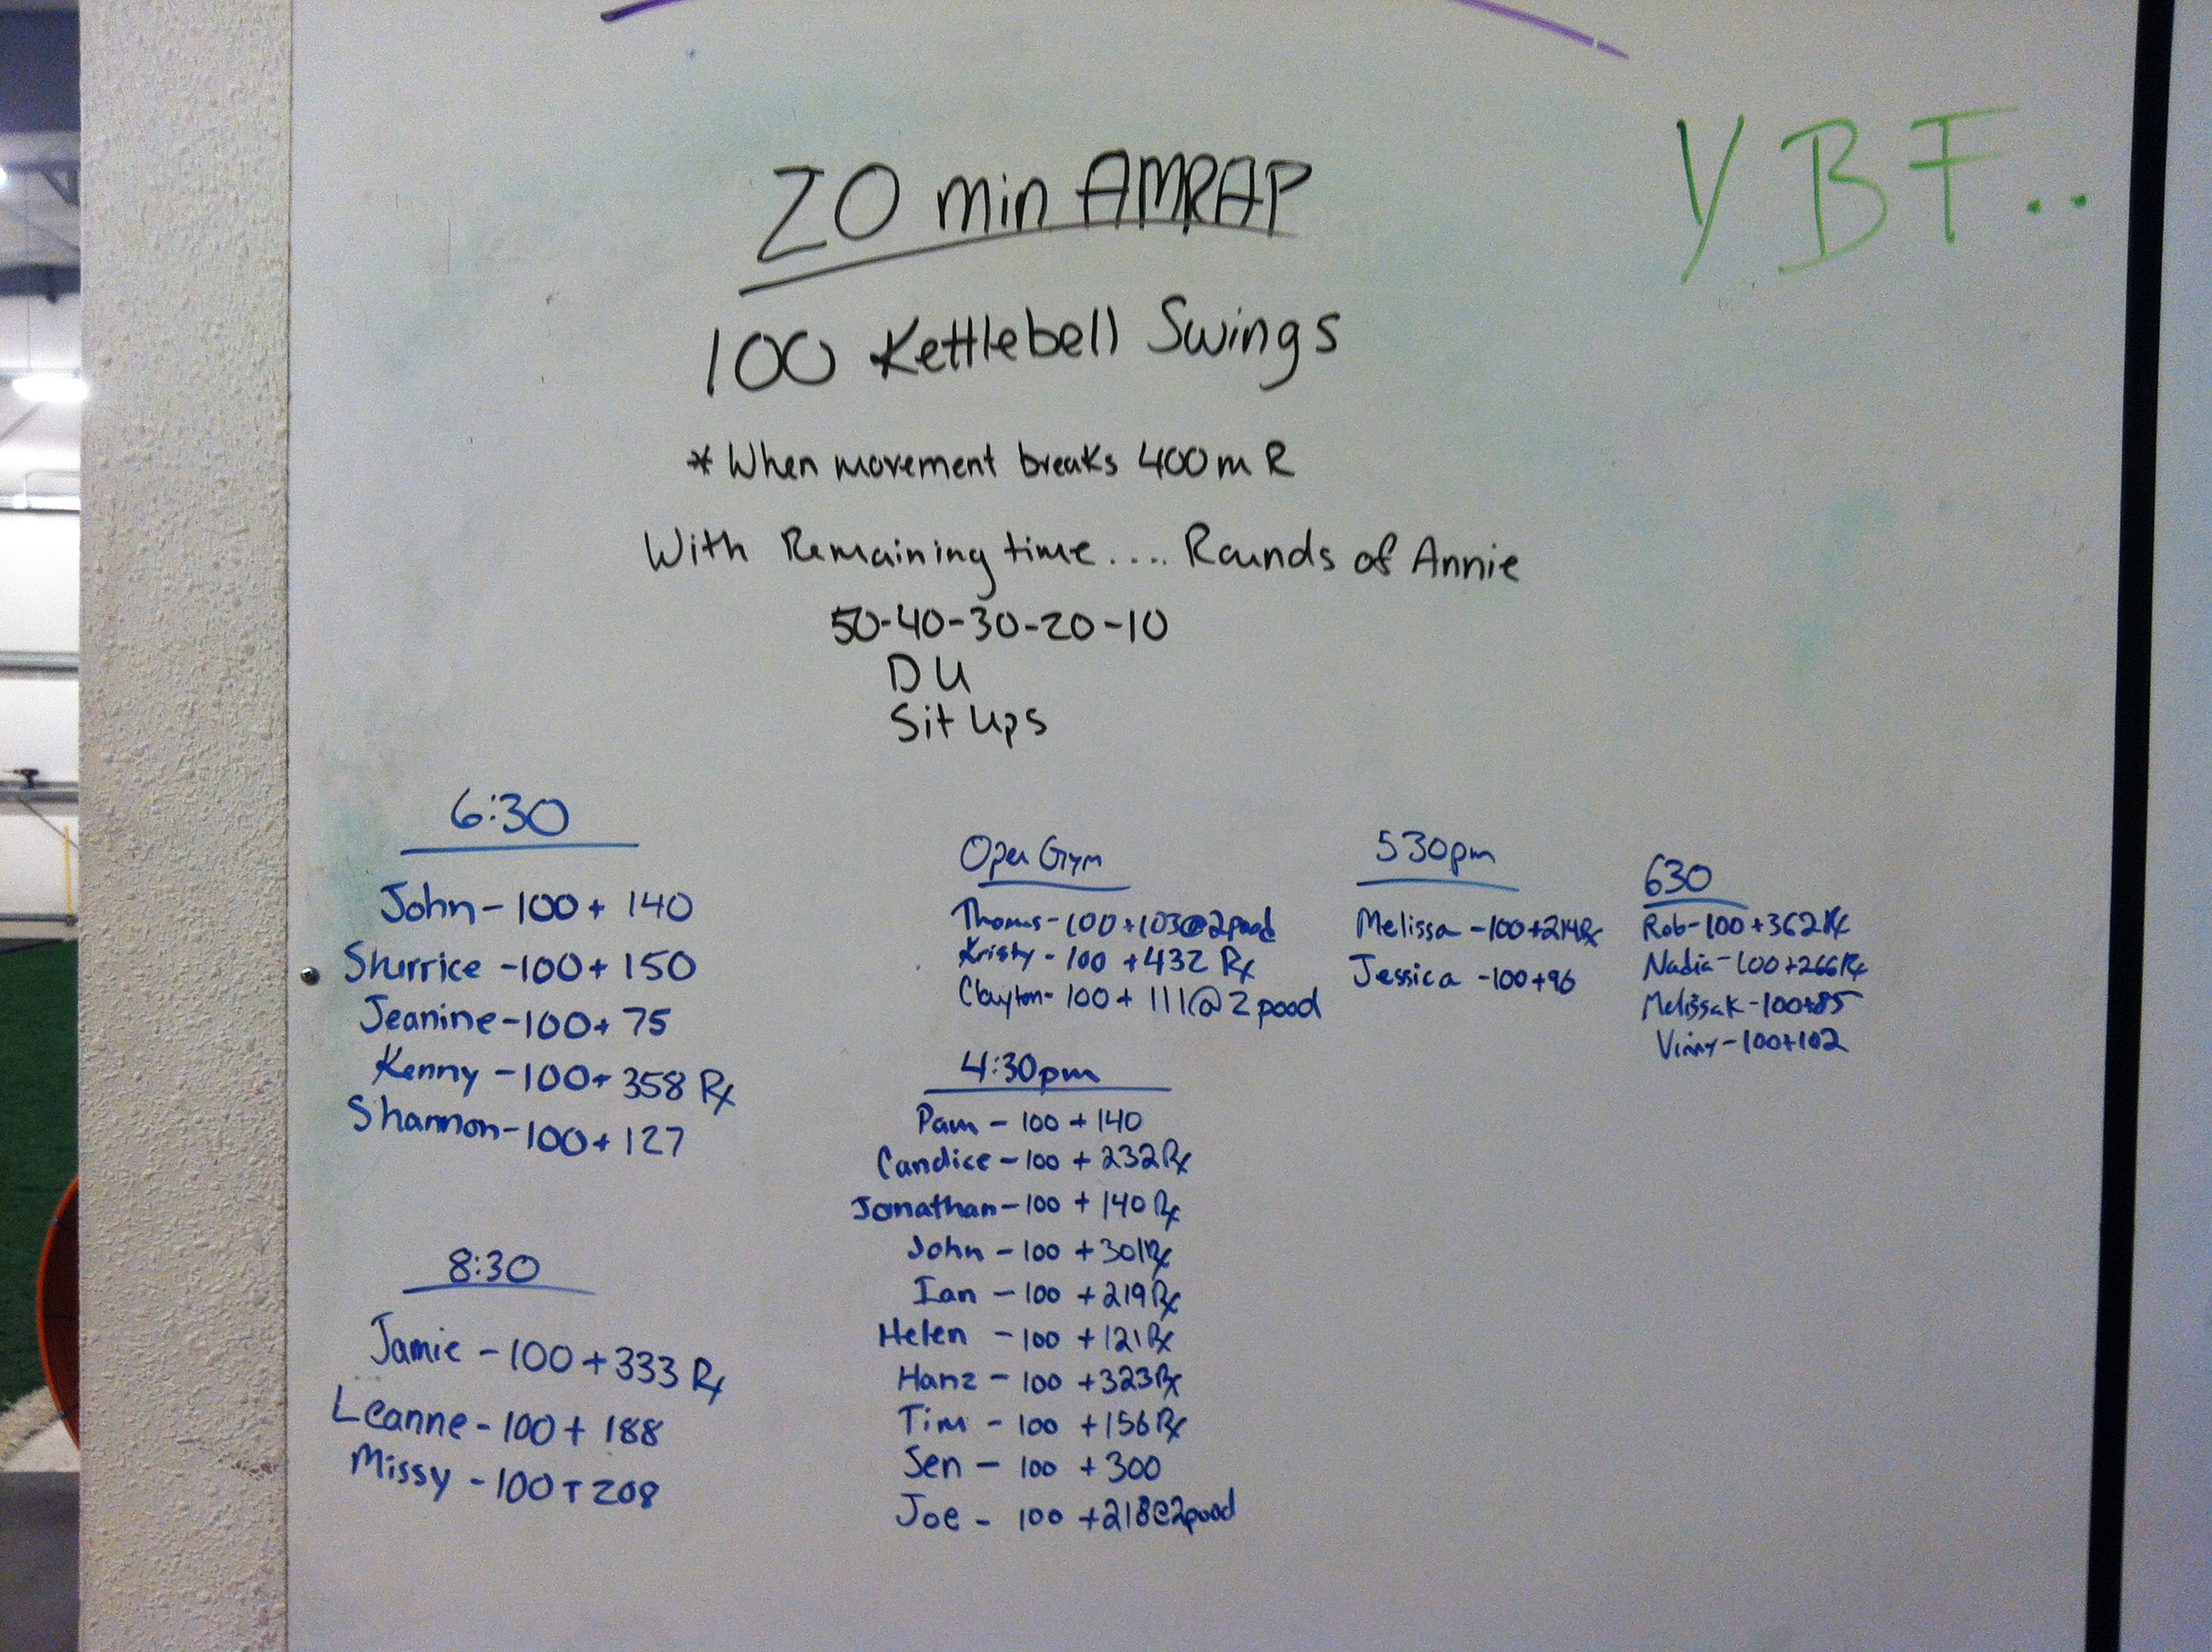 YBF..
20 min AMRAP
100 Kettlebell Swings
* When movement breaks 400m R
With Remaining time.... Rounds of Annie
50-40-30-20-10
DU
Sit Ups
6:30
John - 100 + 140
Sherrice - 100 + 150
Jeanine - 100 + 75
Kenny - 100 + 358 Rx
Shannon - 100 + 127
8:30
Jamie - 100 + 333 Rx
Leanne - 100 + 188
Missy - 100 + 208
Open Gym
Thomas - 100 + 103 @ 2 pood
Kristy - 100 + 432 Rx
Clayton - 100 + 111 @ 2 pood
4:30pm
Pam - 100 + 140
Candice - 100 + 232 Rx
Jonathan - 100 + 140 Rx
John - 100 + 301 Rx
Ian - 100 + 219 Rx
Helen - 100 + 121 Rx
Hanz - 100 + 323 Rx
Tim - 100 + 156 Rx
Jen - 100 + 300
Joe - 100 + 218 @ 2 pood
530pm
Melissa - 100 + 214 Rx
Jessica - 100 + 96
630
Rob - 100 + 362 Rx
Nadia - 100 + 266 Rx
Melissa K - 100 + 85
Vinny - 100 + 102